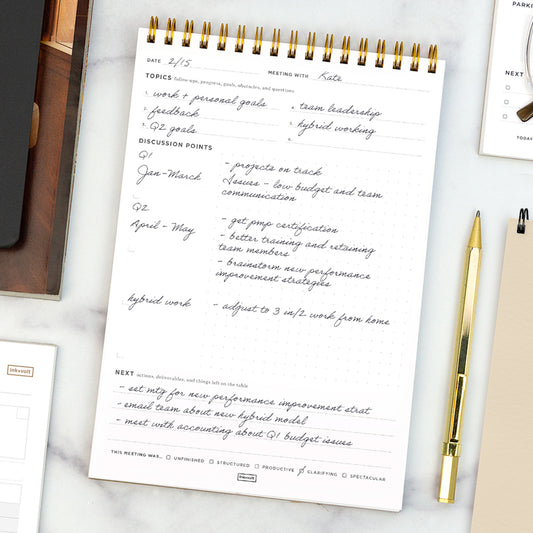 DATE 2/15 MEETING WITH Kate
TOPICS follow-ups, progress, goals, obstacles, and questions
1. work + personal goals
2. feedback
3. Q2 goals
4. team leadership
5. hybrid working
6.
DISCUSSION POINTS
Q1
Jan-March
- projects on track
Issues - low budget and team
communication
Q2
April - May
- get pmp certification
- better training and retaining
team members
- brainstorm new performance
improvement strategies
hybrid work
- adjust to 3 in/2 work from home
NEXT actions, deliverables, and things left on the table
- set mtg for new performance improvement strat
- email team about new hybrid model
- meet with accounting about Q1 budget issues
THIS MEETING WAS... UNFINISHED STRUCTURED PRODUCTIVE CLARIFYING SPECTACULAR
ink+volt
ink+volt
NEXT
TODAY